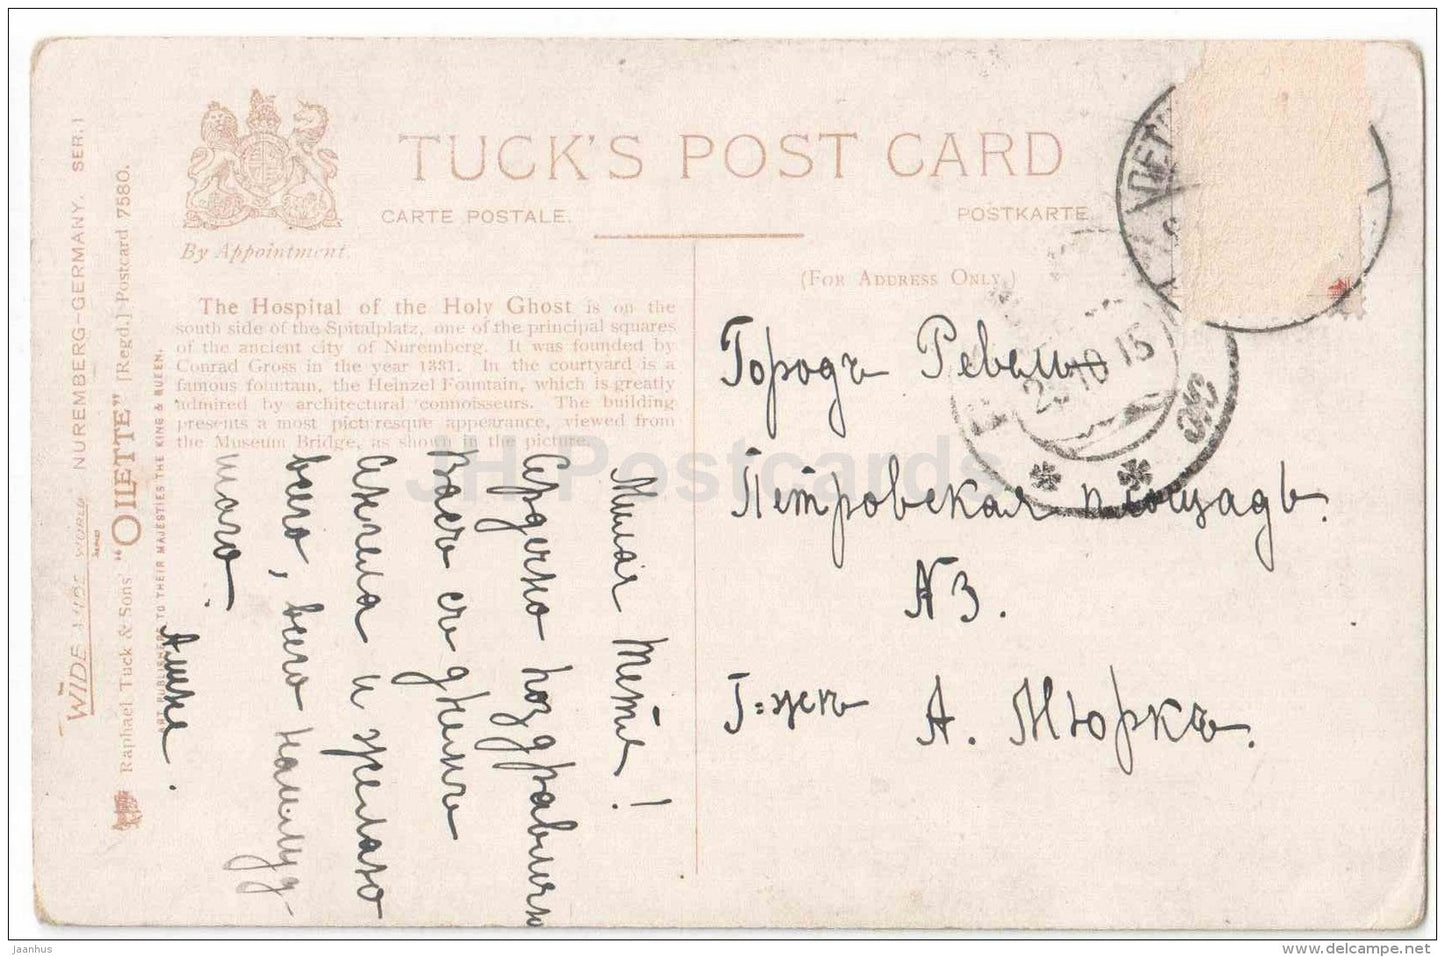 TUCK'S POST CARD
CARTE POSTALE.
POSTKARTE.
By Appointment.
(FOR ADDRESS ONLY.)
The Hospital of the Holy Ghost is on the
south side of the Spitalplatz, one of the principal squares
of the ancient city of Nuremberg. It was founded by
Conrad Gross in the year 1331. In the courtyard is a
famous fountain, the Heinzel Fountain, which is greatly
admired by architectural connoisseurs. The building
presents a most picturesque appearance, viewed from
the Museum Bridge, as shown in the picture.
WIDE WIDE WORLD NUREMBERG-GERMANY. SER. I
Raphael Tuck & Sons' "OILETTE" [Regd.] Postcard 7580.
ART PUBLISHERS TO THEIR MAJESTIES THE KING & QUEEN.
Милая тетя!
Сердечно поздравляю
Васъ съ днемъ
Ангела и желаю
всего, всего наилуд-
шаго.
Городъ Ревель
Петровская площадь.
N 3.
Г=жѣ
А. Мюркъ.
10 15
JH Postcards
jaanhus
www.delcampe.net